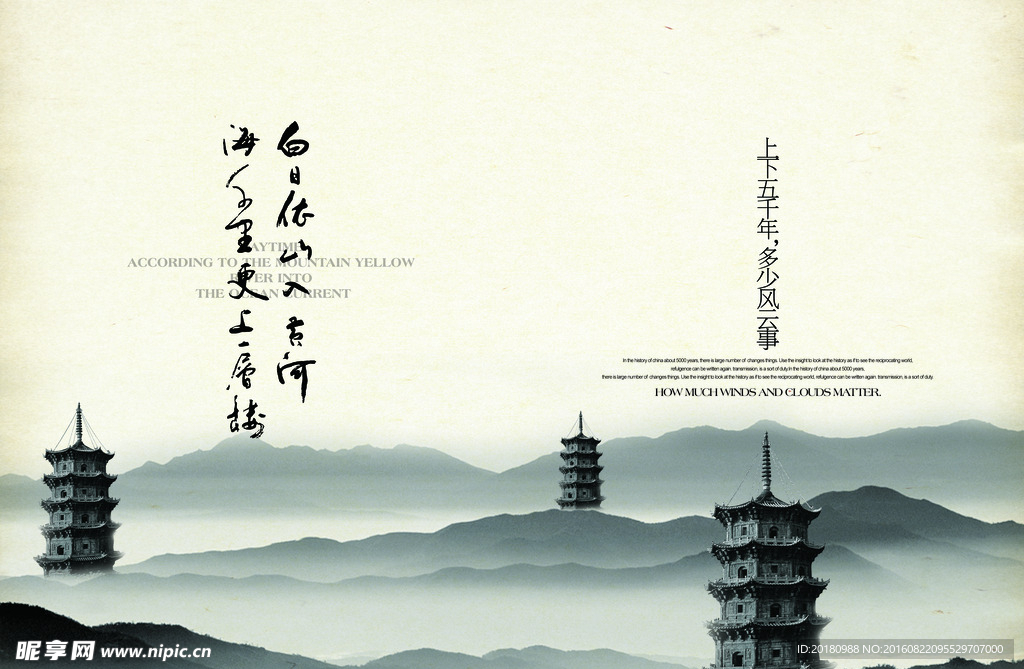 白日依山入黄河
海千里更上一層樓
DAYTIME
ACCORDING TO THE MOUNTAIN YELLOW
RIVER INTO
THE OCEAN CURRENT
上下五千年，多少风云事
In the history of china about 5000 years, there is large number of changes things. Use the insight to look at the history as if to see the reciprocating world,
refulgence can be written again. transmission, is a sort of duty.In the history of china about 5000 years,
there is large number of changes things. Use the insight to look at the history as if to see the reciprocating world, refulgence can be written again. transmission, is a sort of duty.
HOW MUCH WINDS AND CLOUDS MATTER.
昵享网 www.nipic.cn
ID:20180988 NO:20160822095529707000